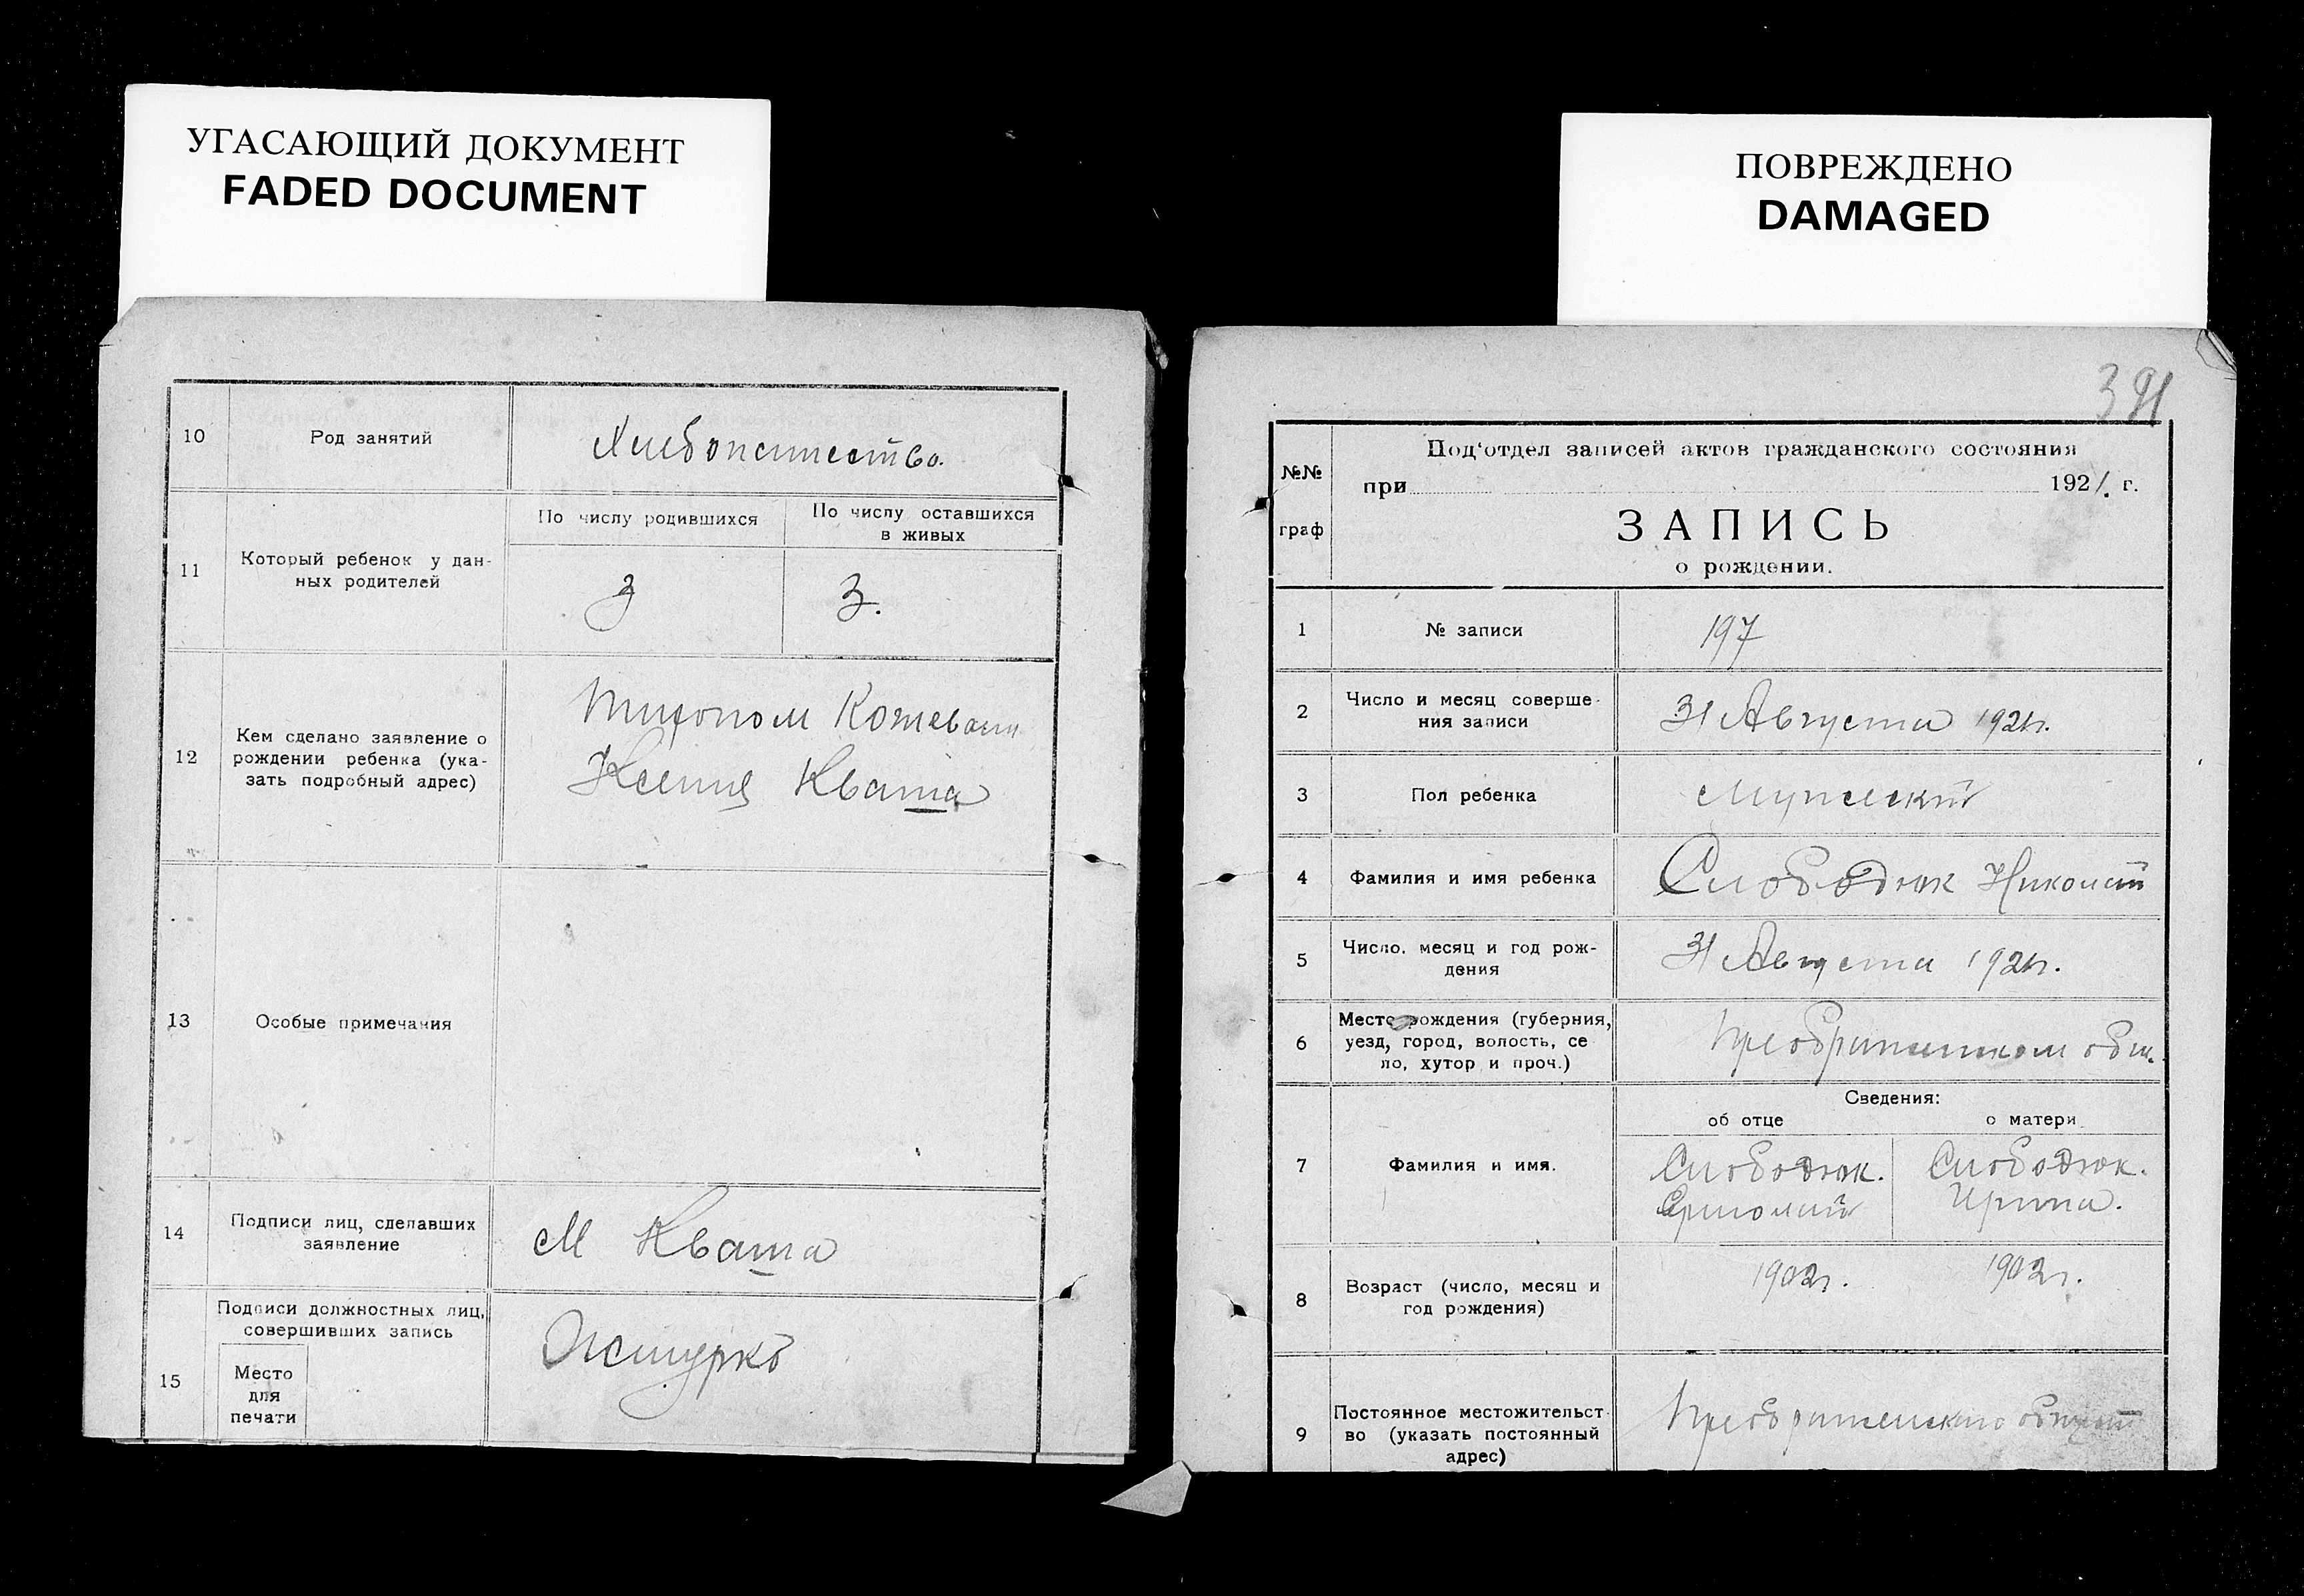 УГАСАЮЩИЙ ДОКУМЕНТ
FADED DOCUMENT
10
Род занятий
Хлебопашество.
11
Который ребенок у дан-
ных родителей
По числу родившихся
По числу оставшихся
в живых
3
3.
12
Кем сделано заявление о
рождении ребенка (ука-
зать подробный адрес)
Ксения Кваша
13
Особые примечания
14
Подписи лиц, сделавших
заявление
М Кваша
15
Подписи должностных лиц,
совершивших запись
Место
для
печати
ПОВРЕЖДЕНО
DAMAGED
391
№№
граф
Под‘отдел записей актов гражданского состояния
при 1921. г.
ЗАПИСЬ
о рождении.
1
№ записи
197
2
Число и месяц соверше-
ния записи
31 Августа 1921г.
3
Пол ребенка
Мужский
4
Фамилия и имя ребенка
Слободюк Николай
5
Число, месяц и год рож-
дения
31 Августа 1921г.
6
Место рождения (губерния,
уезд, город, волость, се
ло, хутор и проч.)
7
Фамилия и имя.
Сведения:
об отце
о матери
Слободюк.
Ермолай
Слободюк.
Ирина.
8
Возраст (число, месяц и
год рождения)
1902г.
1902г.
9
Постоянное местожительст-
во (указать постоянный
адрес)